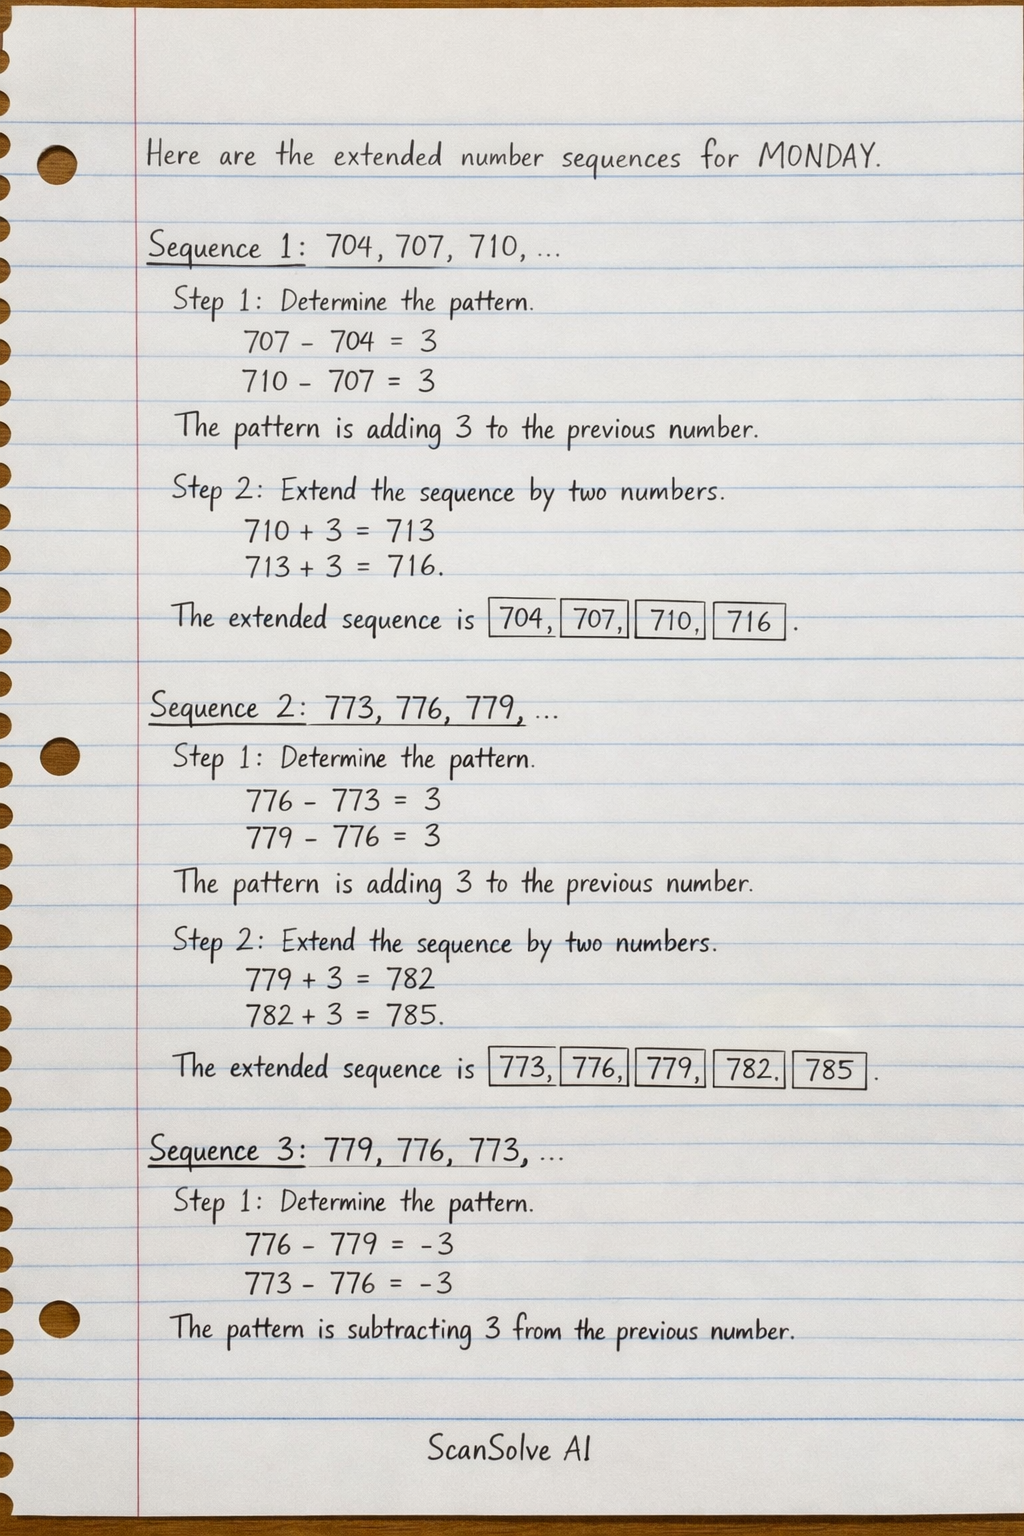 Here are the extended number sequences for MONDAY.
Sequence 1: 704, 707, 710, ...
Step 1: Determine the pattern.
707 - 704 = 3
710 - 707 = 3
The pattern is adding 3 to the previous number.
Step 2: Extend the sequence by two numbers.
710 + 3 = 713
713 + 3 = 716.
The extended sequence is 704, 707, 710, 716 .
Sequence 2: 773, 776, 779, ...
Step 1: Determine the pattern.
776 - 773 = 3
779 - 776 = 3
The pattern is adding 3 to the previous number.
Step 2: Extend the sequence by two numbers.
779 + 3 = 782
782 + 3 = 785.
The extended sequence is 773, 776, 779, 782. 785 .
Sequence 3: 779, 776, 773, ...
Step 1: Determine the pattern.
776 - 779 = -3
773 - 776 = -3
The pattern is subtracting 3 from the previous number.
ScanSolve AI